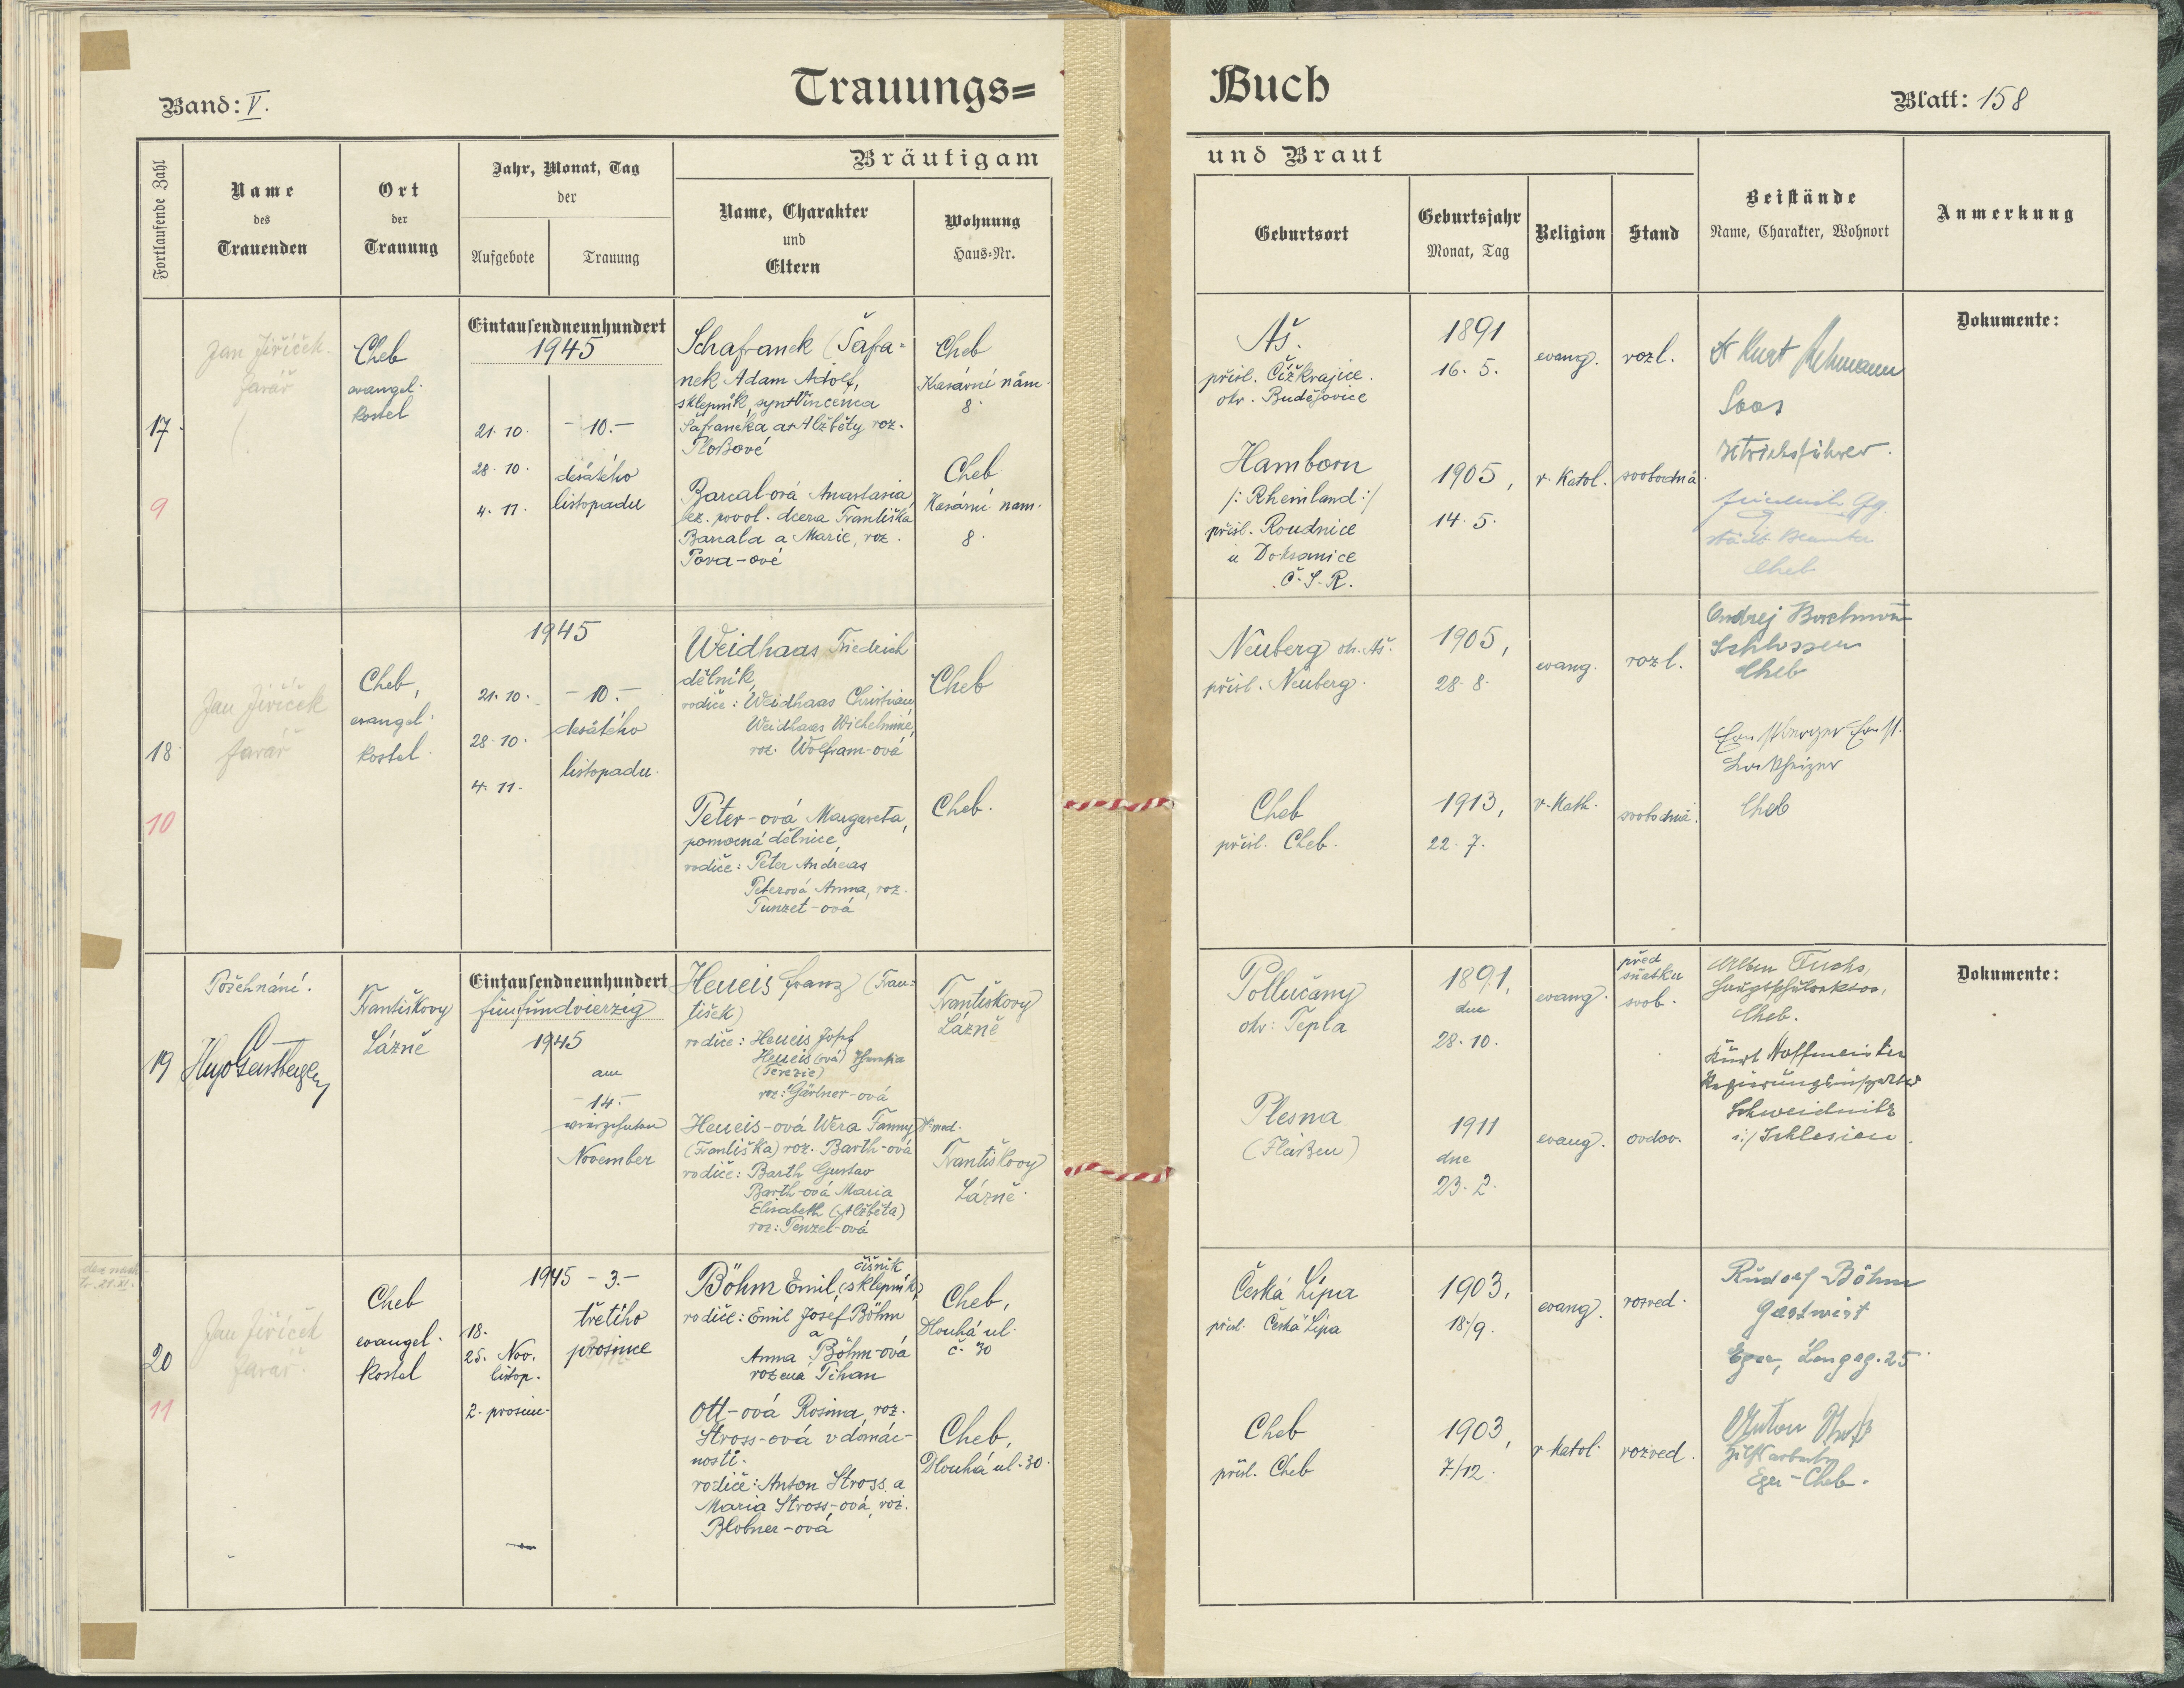 Band: V.
Trauungs=
Buch
Blatt: 158
Fortlaufende Zahl
Name
des
Trauenden
Ort
der
Trauung
Jahr, Monat, Tag
der
Aufgebote
Trauung
Bräutigam
Name, Charakter
und
Eltern
Wohnung
Haus-Nr.
und Braut
Geburtsort
Geburtsjahr
Monat, Tag
Religion
Stand
Beistände
Name, Charakter, Wohnort
Anmerkung
17.
9
Jan Jiříček
farář
Cheb
evangel.
kostel
Eintausendneunhundert
1945
21. 10.
28. 10.
4. 11.
- 10. -
desátého
listopadu
Schafranek (Šafra-
nek Adam Adolf,
sklepník, syn + Vincenca
Šafraneka a + Alžběty roz.
Ploßové
Cheb
Kasární nám.
8.
Barcal-ová Anastasia
bez. povol. dcera Františka
Barcala a Marie, roz.
Pova-ové
Cheb
Kasární nam.
8.
Aš.
přísl. Čížkrajice.
okr. Budějovice
1891
16. 5.
evang.
rozl.
Hamborn
/: Rheinland :/
přísl. Roudnice
u Doksanice
Č. S. R.
1905,
14. 5.
r. katol.
svobodná
Kurt
Soos
Gg.
städt. Beamter
Cheb
Dokumente:
18
10
Jan Jiříček
farář
Cheb,
evangel.
kostel.
1945
21. 10.
28. 10.
4. 11.
- 10. -
desátého
listopadu.
Weidhaas Friedrich
dělník,
rodiče: Weidhaas Christian
Weidhaas Wilhelmine,
roz. Wolfram-ová
Cheb
Peter-ová Margareta,
pomocná dělnice,
rodiče: Peter Andreas
Peterová Anna, roz.
Tunzet-ová
Cheb.
Neuberg ok. Aš.
přísl. Neuberg.
1905,
28. 8.
evang.
rozl.
Cheb
přísl. Cheb.
1913,
22. 7.
r. Kath.
svobodná.
Schlosser
Cheb
Ernst
Cheb
19
Požehnání.
Františkovy
Lázně
Eintausendneunhundert
fünfundvierzig
1945
am
- 14. -
vierzehnten
November
Heueis Franz (Fran-
tišek)
rodiče: Heueis Josef
Heueis (ová) Theresia
(Terezie)
roz: Gärtner-ová
Františkovy
Lázně
Heueis-ová Wera Fanny
(Františka) roz. Barth-ová
rodiče: Barth Gustav
Barth-ová Maria
Elisabeth (Alžběta)
roz: Tenzel-ová
Františkovy
Lázně.
Pollučany
okr: Tepla
1891,
dne
28. 10.
evang.
před
sňatku
svob.
Plesna
(Fleißen)
1911
dne
23. 2.
evang.
ovdov.
Fuchs,
Cheb.
Kurt Hoffmeister
Regierungsinspektor
Schweidnitz
i:/ Schlesien.
Dokumente:
20
11
Jan Jiříček
farář.
Cheb
evangel.
kostel
1945 - 3. -
18.
25. Nov.
listop.
2. prosinc-
třetího
prosince
číšník
Böhm Emil, (sklepník),
rodiče: Emil Josef Böhm
a
Anna Böhm-ová
rozená Tihan
Cheb,
Dlouhá ul.
č. 30
Ott-ová Rosina, roz.
Stross-ová v domác-
nosti.
rodiče: Anton Stross a
Maria Stross-ová, roz.
Blobner-ová
Cheb,
Dlouhá ul. 30.
Česká Lípa
přísl. Česká Lípa
1903,
18/9.
evang.
rozved.
Cheb
přísl. Cheb
1903,
7/12.
r katol.
rozved.
Rudolf Böhm
Gastwirt
Eger, Langeg. 25
Anton
Hilfsarbeiter
Eger-Cheb.